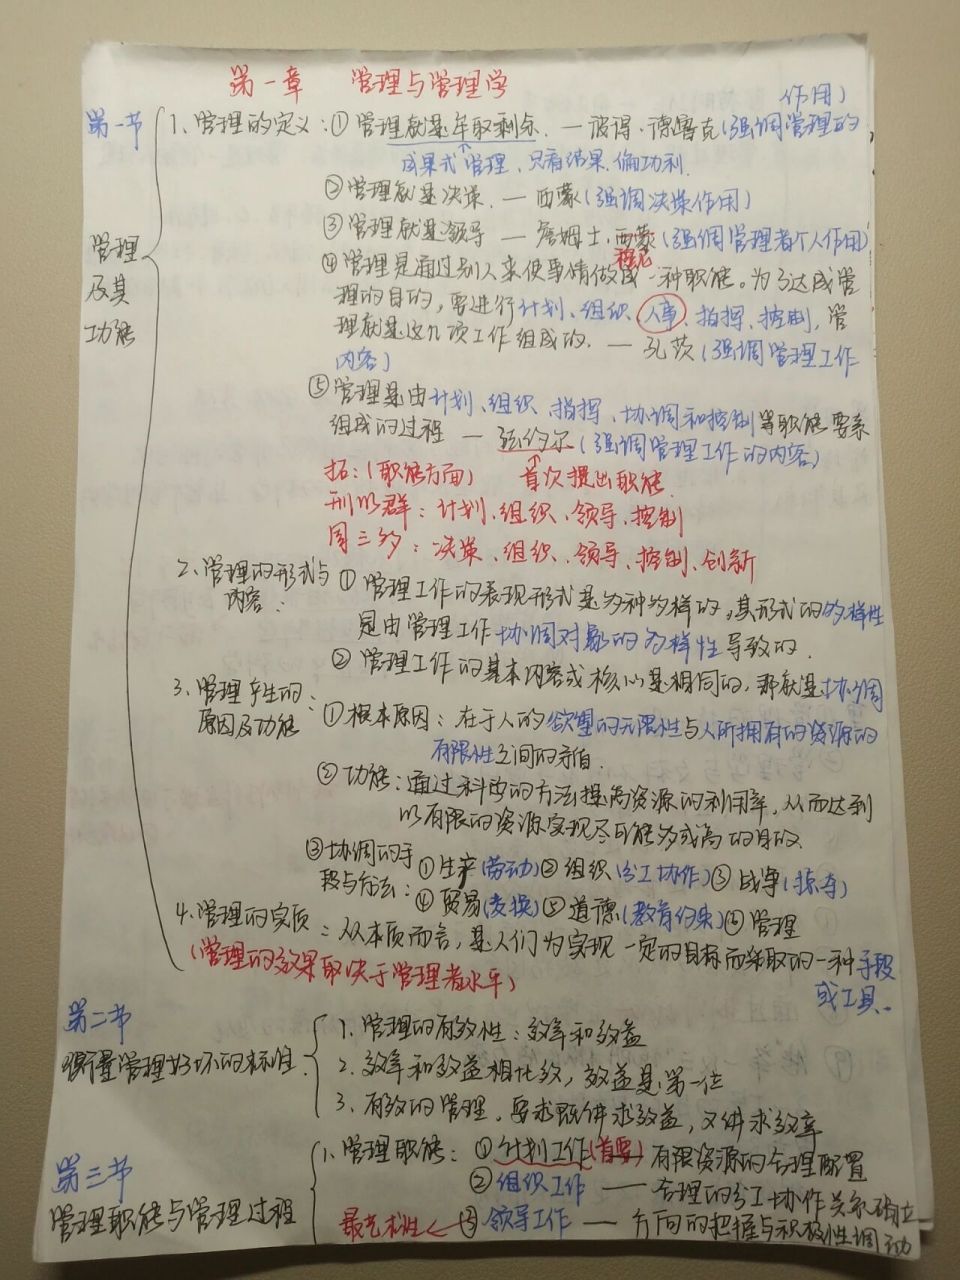 第一章 管理与管理学
第一节
管理及其功能
1、管理的定义：① 管理就是牟取剩余. — 彼得·德鲁克（强调管理的作用）
成果式管理、只看结果、偏功利.
② 管理就是决策. — 西蒙（强调决策作用）
③ 管理就是领导 — 詹姆士·西蒙（强调管理者个人作用）
穆尼
④ 管理是通过别人来使事情做成一种职能。为了达成管
理的目的，要进行计划、组织、人事、指挥、控制，管
理就是这几项工作组成的. — 孔茨（强调管理工作
内容）
⑤ 管理是由计划、组织、指挥、协调和控制等职能要素
组成的过程 — 法约尔（强调管理工作的内容）
拓：（职能方面） 首次提出职能.
邢以群：计划、组织、领导、控制
周三多：决策、组织、领导、控制、创新
2、管理的形式与内容：
① 管理工作的表现形式是多种多样的，其形式的多样性
是由管理工作协调对象的多样性导致的.
② 管理工作的基本内容或核心是相同的，那就是协调
3、管理产生的原因及功能：
① 根本原因：在于人的欲望的无限性与人所拥有的资源的
有限性之间的矛盾.
② 功能：通过科学的方法提高资源的利用率，从而达到
以有限的资源实现尽可能多或高的目的.
③ 协调的手段与方法：
① 生产（劳动）② 组织（分工协作）③ 战争（掠夺）
④ 贸易（交换）⑤ 道德（教育约束）⑥ 管理
4、管理的实质：从本质而言，是人们为实现一定的目标而采取的一种手段
或工具.
（管理的效果取决于管理者水平）
第二节
衡量管理好坏的标准
1、管理的有效性：效率和效益
2、效率和效益相比较，效益是第一位
3、有效的管理，要求既讲求效益，又讲求效率
第三节
管理职能与管理过程
1、管理职能：① 计划工作（首要）— 有限资源的合理配置
② 组织工作 — 合理的分工协作关系确立
最艺术性 ← ③ 领导工作 — 方向的把握与积极性调动